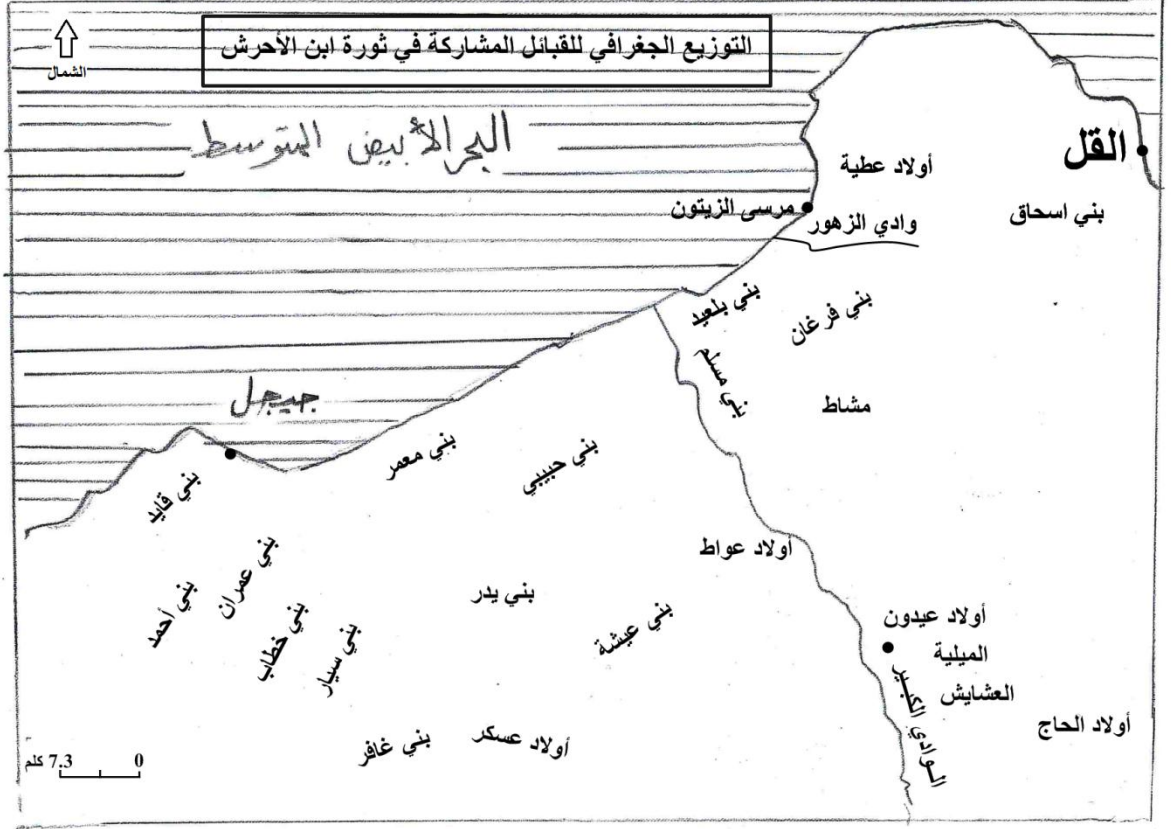 التوزيع الجغرافي للقبائل المشاركة في ثورة ابن الأحرش
الشمال
البحر الأبيض المتوسط
القل
أولاد عطية
مرسى الزيتون
وادي الزهور
بني اسحاق
بني بلعيد
بني فرغان
بني مسلم
مشاط
جيجل
بني معمر
بني حبيبي
بني قايد
أولاد عواط
بني عمران
بني أحمد
بني خطاب
بني سيار
بني يدر
بني عيشة
أولاد عيدون
الميلية
العشايش
الوادي الكبير
أولاد الحاج
أولاد عسكر
بني غافر
0 7.3 كلم